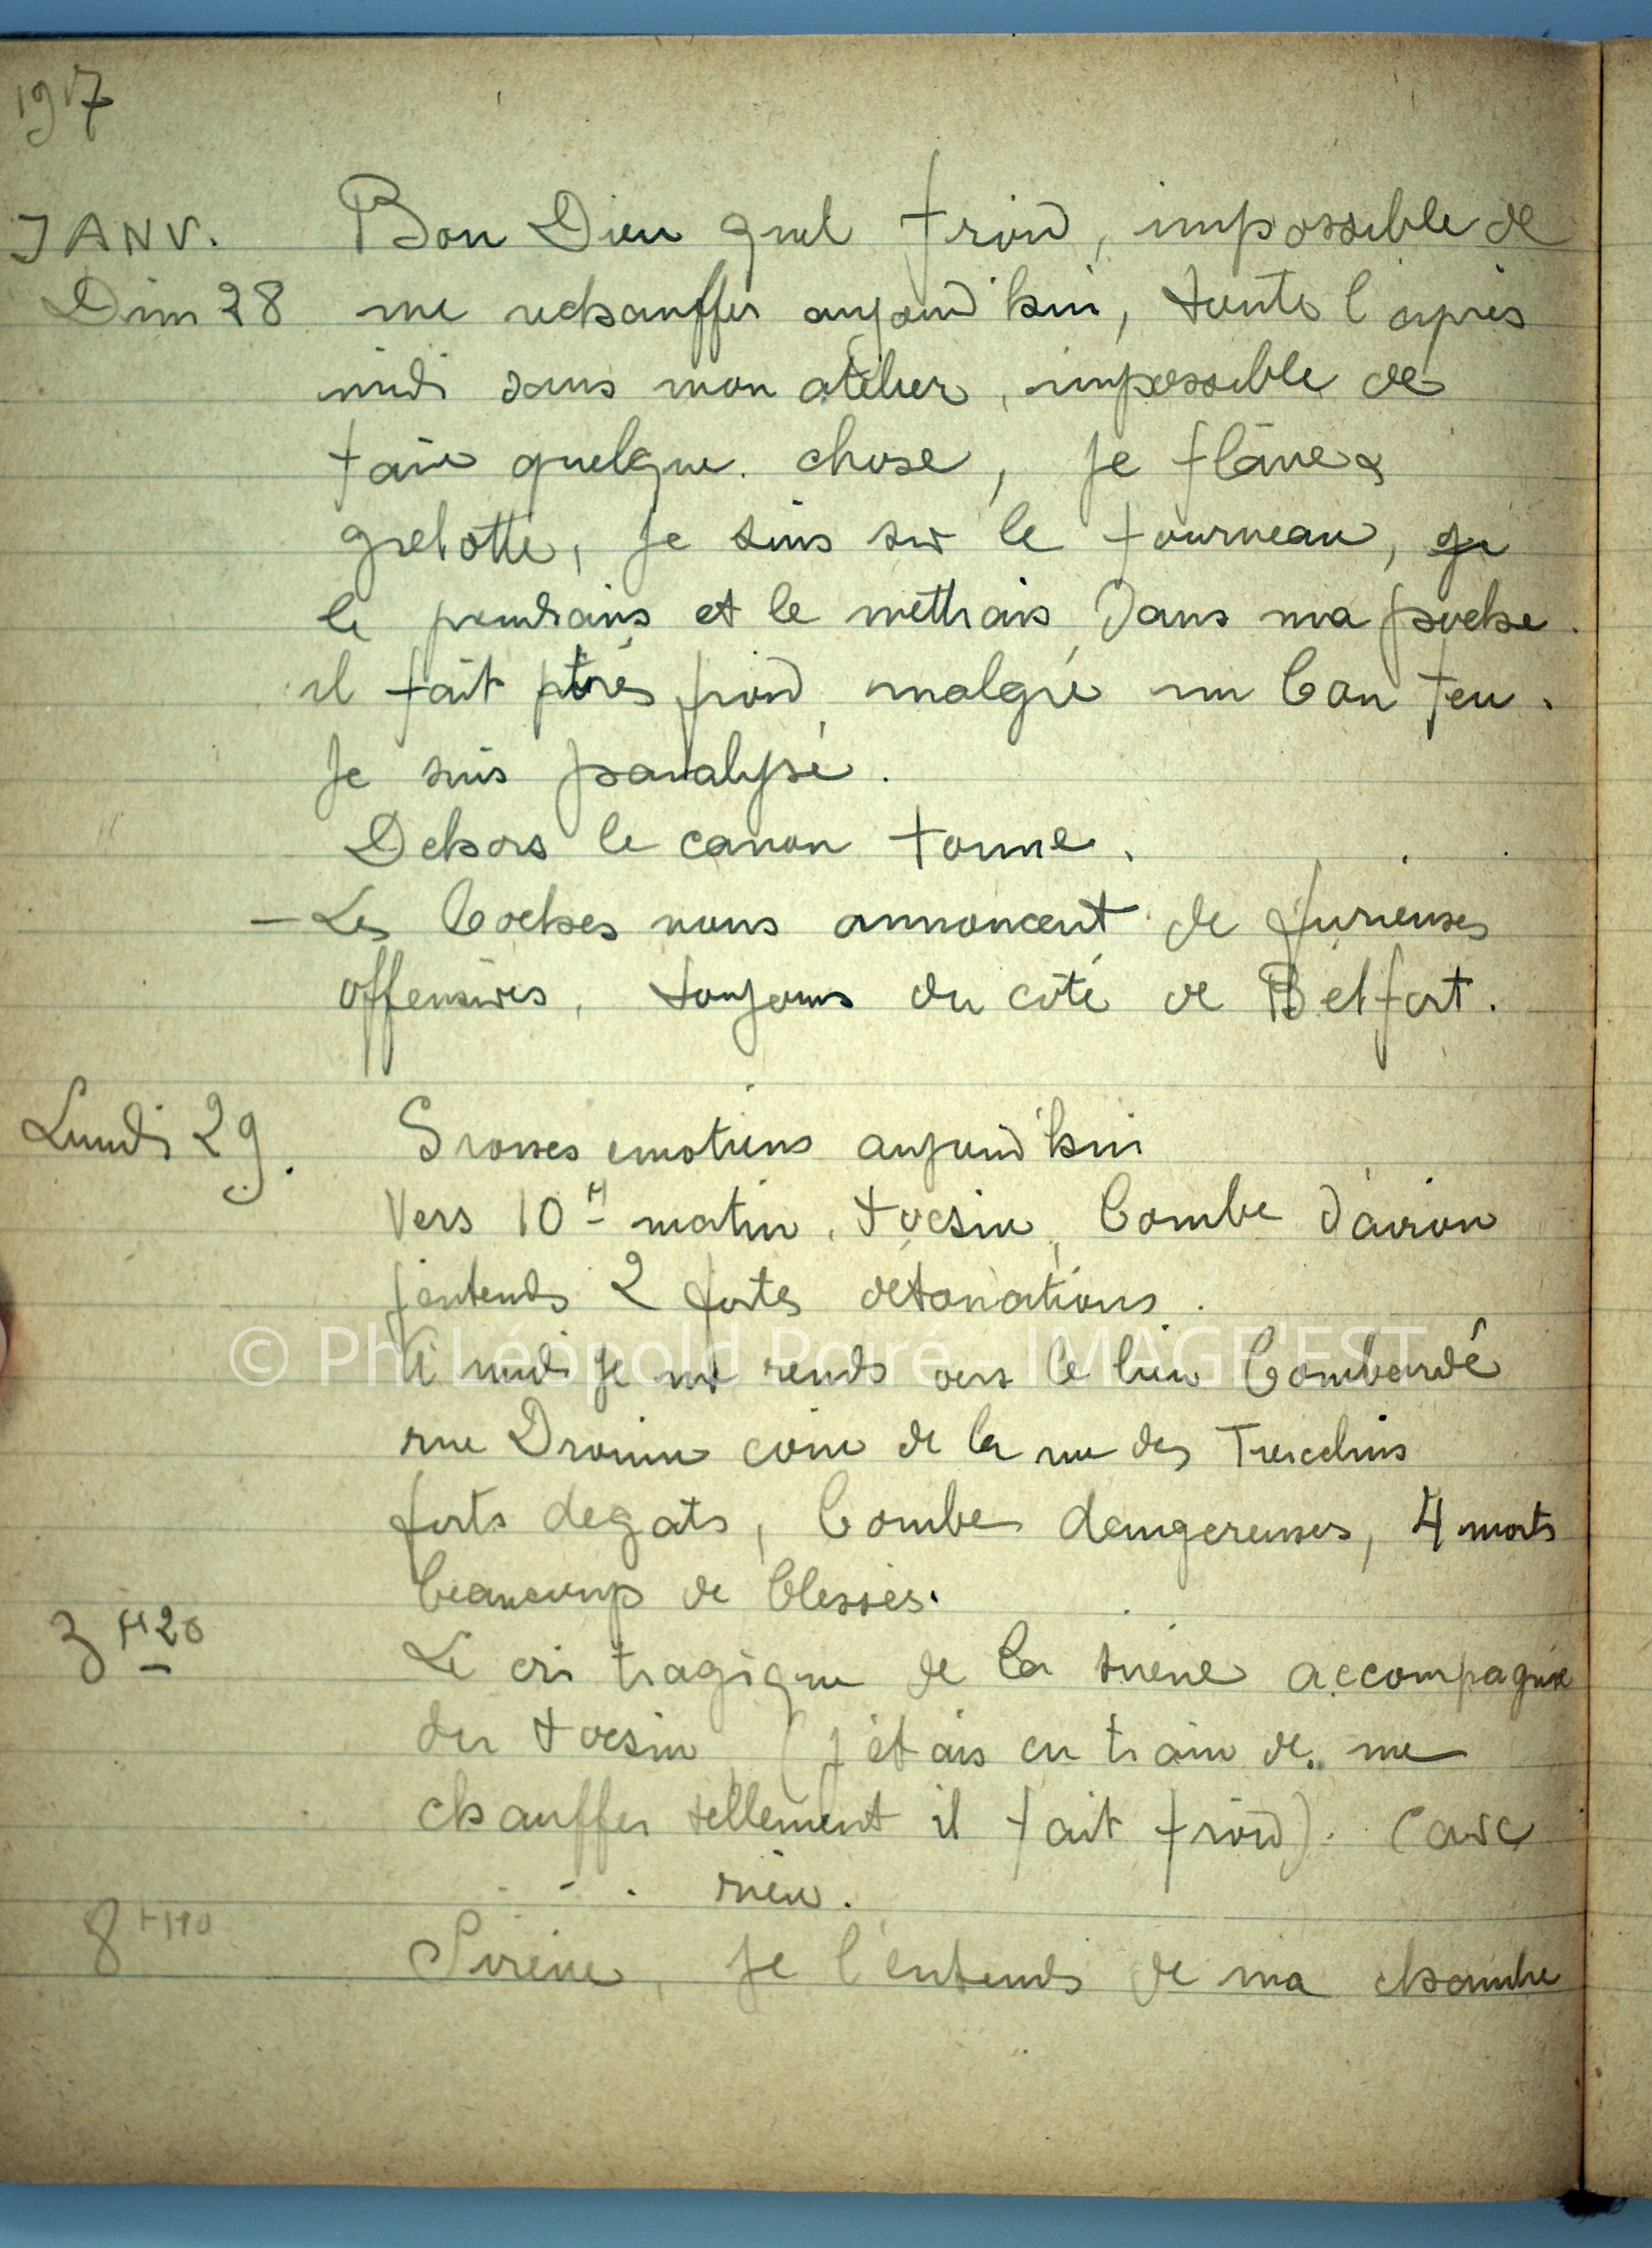 1917
JANV. Bon Dieu quel froid, impossible de
Dim 28 me rechauffer aujourd'hui, toute l'après
midi dans mon atelier, impossible de
faire quelque chose, je flâne &
grelotte, je suis sur le fourneau,
le prendrais et le mettrais dans ma poche.
il fait très froid malgré un bon feu.
Je suis paralysé.
Dehors le canon tonne.
— Les boches nous annoncent de furieuses
offensives, toujours du côté de Belfort.
Lundi 29. Grosses emotions aujourd'hui
Vers 10H matin, tocsin, bombe d'avion
j'entends 2 fortes detonations.
© Ph. Léopold Poiré - IMAGE'EST
A midi je me rends vers le lieu bombardé
rue Drouin coin de la rue des Tiercelins
forts degats, bombes dangereuses, 4 morts
beaucoup de blessés.
3H20 Le cri tragique de la sirène accompagné
du tocsin (j'étais en train de me
chauffer tellement il fait froid). Cave
rien.
8H10 Sirène, je l'entends de ma chambre